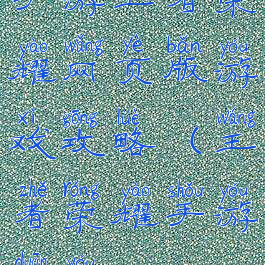 游 者 荣
yào wǎng yè bǎn yóu
耀 网 页 版 游
xì gōng lüè wáng
戏 攻 略 （ 王
zhě róng yào shǒu yóu
者 荣 耀 手 游